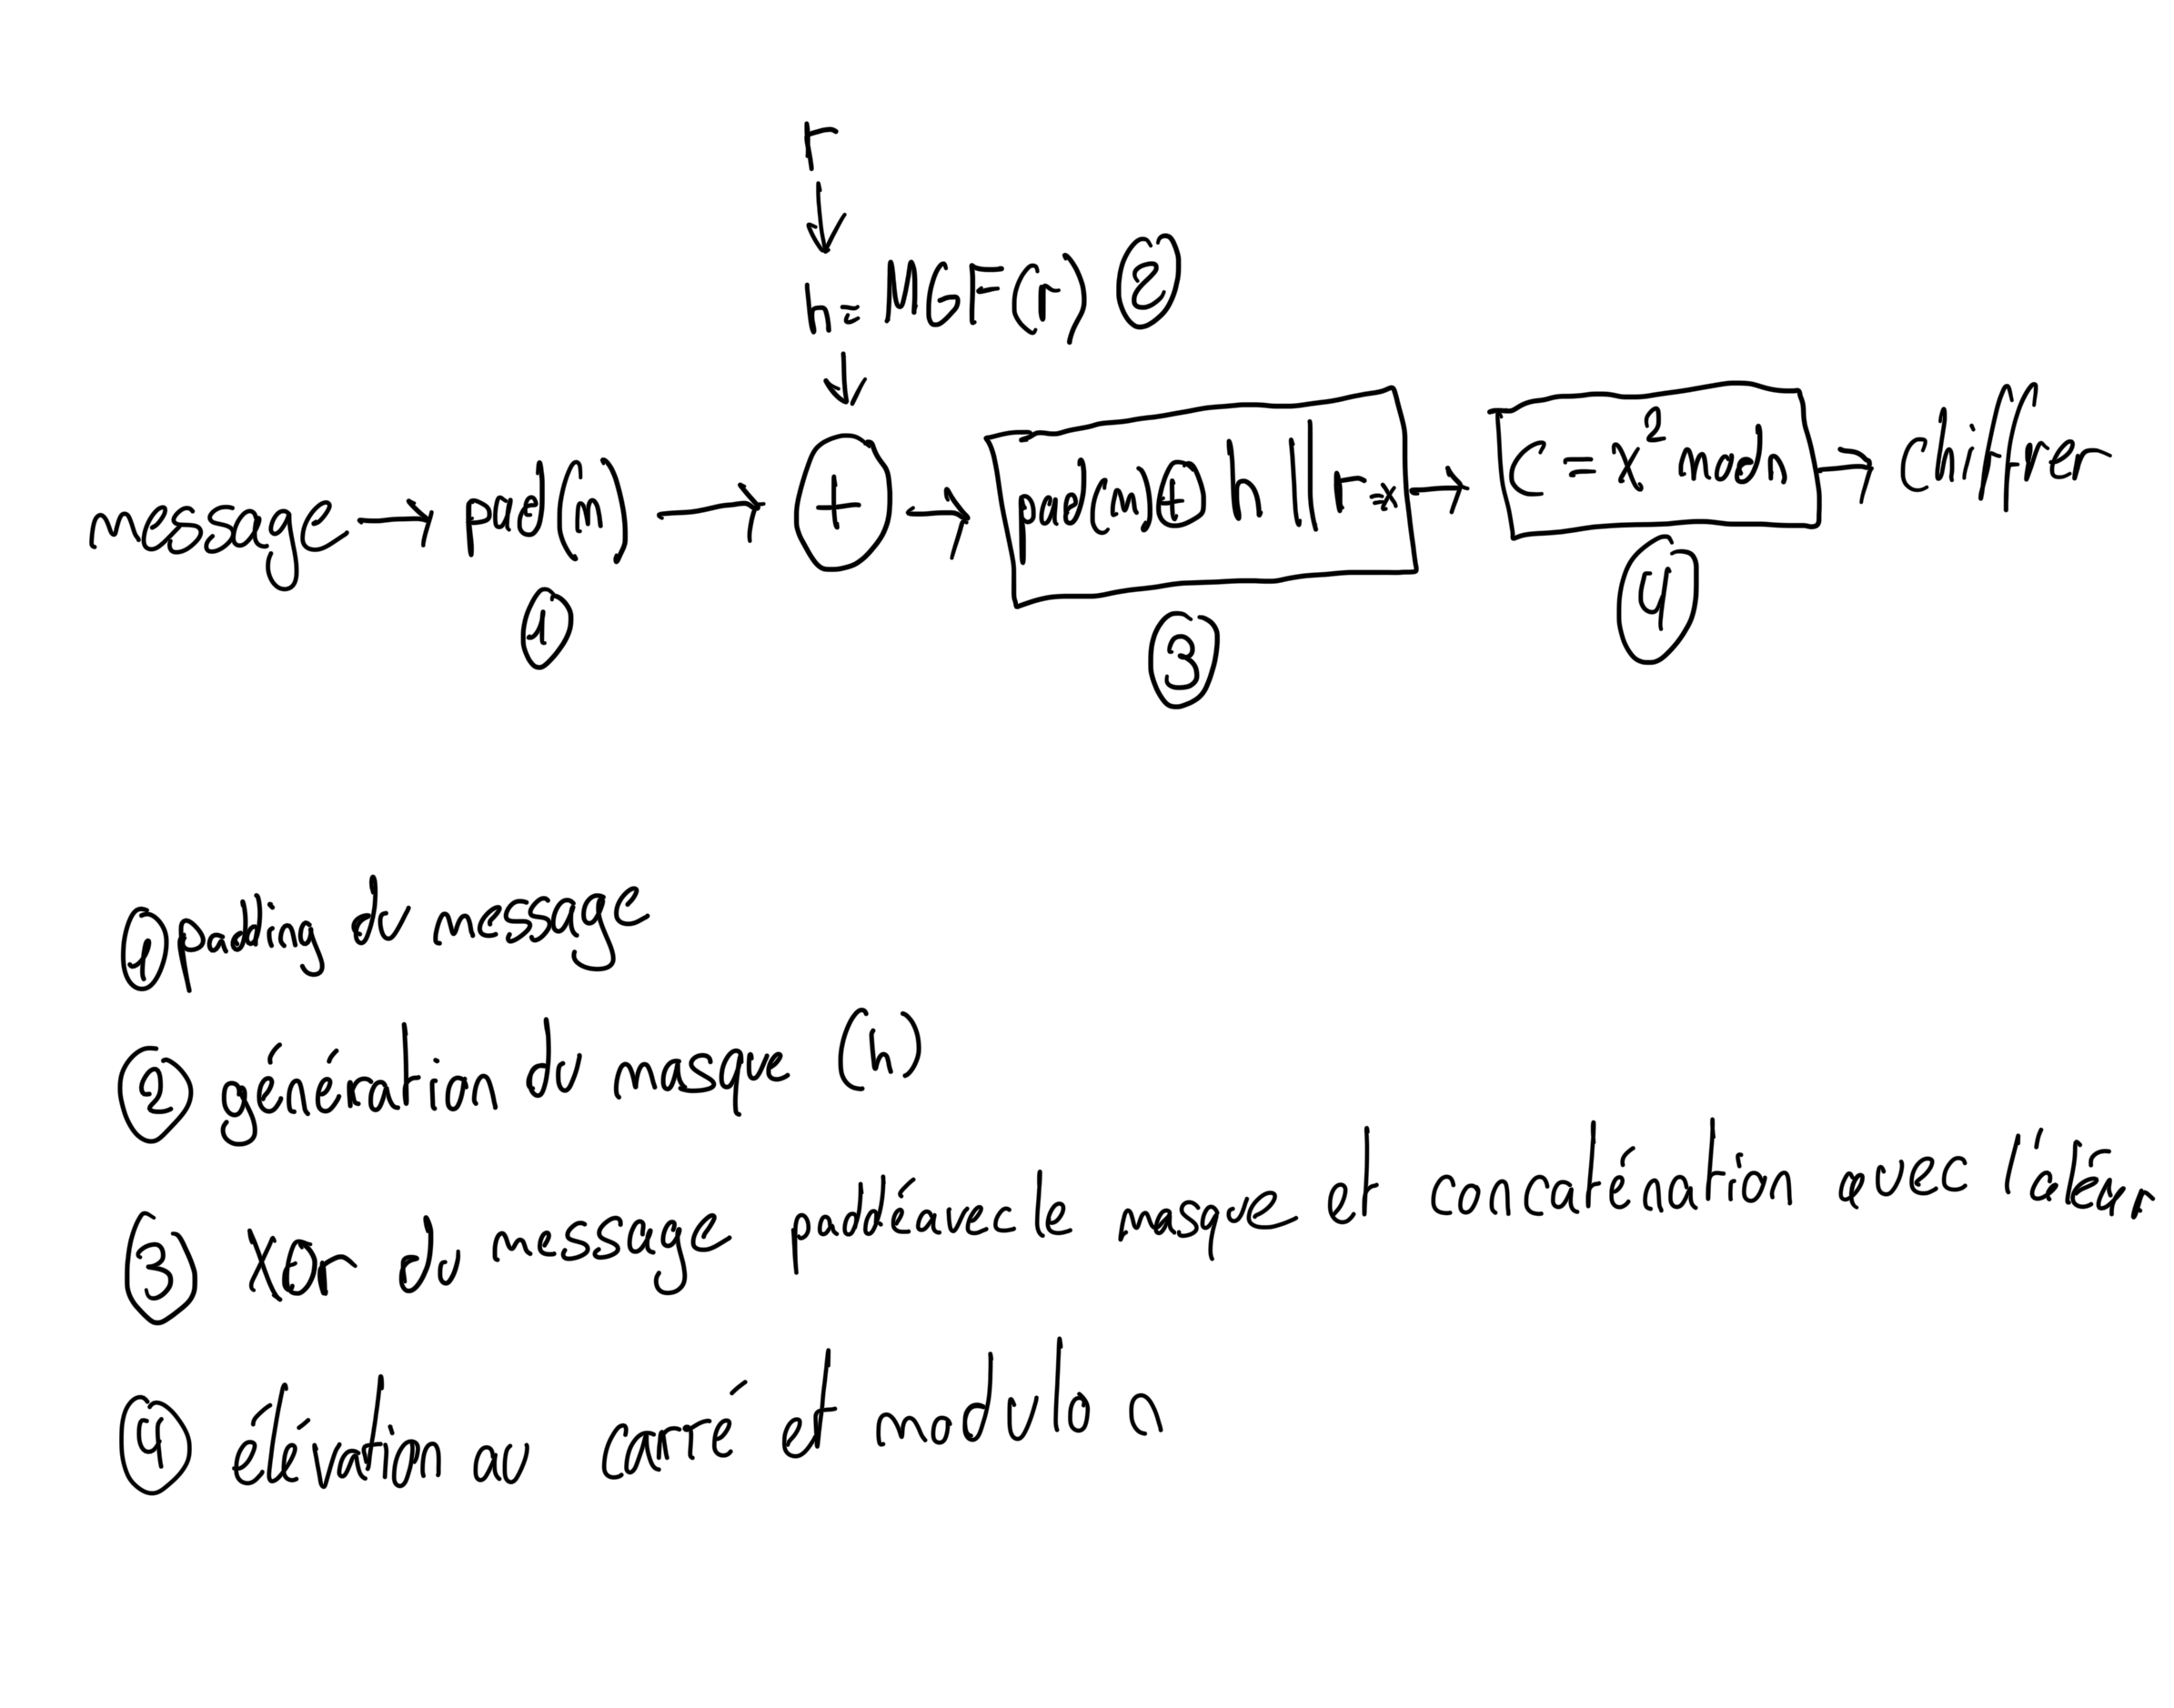 r
h= MGF(r) ②
message → pad(m) → ⊕ → pad(m)⊕ h || r=x → C = x² mod n → chiffrer
① ③ ④
① padding du message
② génération du masque (h)
③ Xor du message paddé avec le masque et concaténation avec l'aléa r
④ élévation au carré et modulo n